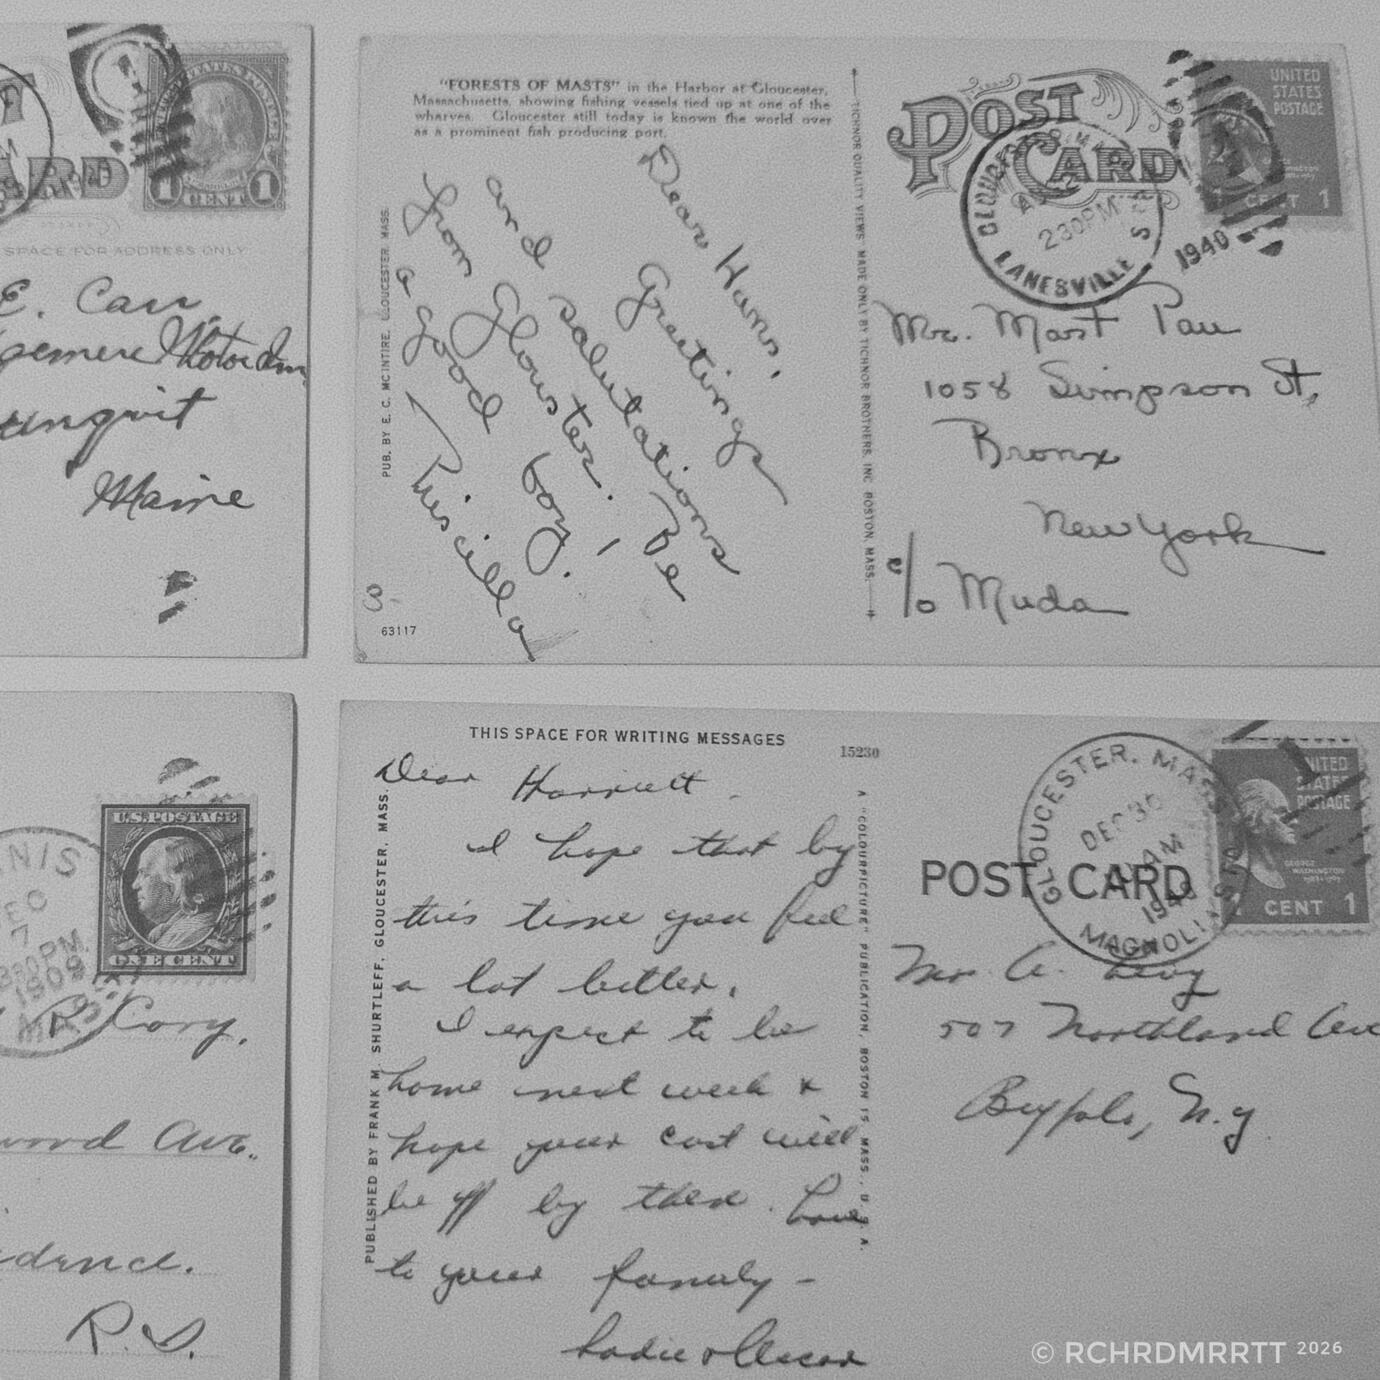 ARD
UNITED STATES POSTAGE
1 CENT 1
SPACE FOR ADDRESS ONLY
E. Carr
Maine
"FORESTS OF MASTS" in the Harbor at Gloucester,
Massachusetts, showing fishing vessels tied up at one of the
wharves. Gloucester still today is known the world over
as a prominent fish producing port.
PUB. BY E. C. MCINTIRE, GLOUCESTER, MASS.
Dear Hans,
Greetings
and salutations
from Glouster. Be
a good boy.
Priscilla
63117
TICHNOR QUALITY VIEWS MADE ONLY BY TICHNOR BROTHERS, INC. BOSTON, MASS.
POST
CARD
GLOUCESTER, MASS
230PM
1940
LANESVILLE STA
UNITED
STATES
POSTAGE
1 CENT 1
Mr. Mast Pau
1058 Simpson St,
Bronx
New York
c/o Muda
NNIS
DEC
7
1909
MASS
U.S. POSTAGE
ONE CENT
R Cory,
wood Ave.
idence.
R.I.
THIS SPACE FOR WRITING MESSAGES
15230
PUBLISHED BY FRANK M. SHURTLEFF, GLOUCESTER, MASS.
Dear Harriett
I hope that by
this time you feel
a lot better.
I expect to be
home next week &
hope your cast will
be off by then. Love
to your family –
Sadie & Oscar
A "COLOURPICTURE" PUBLICATION, BOSTON 15, MASS., U.S.A.
POST CARD
GLOUCESTER, MASS
DEC 30
AM
194
MAGNOLIA STA
UNITED
STATES
POSTAGE
GEORGE
WASHINGTON
1 CENT 1
Mr A. Levy
507 Northland Ave
Buffalo, N.Y.
© RCHRDMRRTT 2026